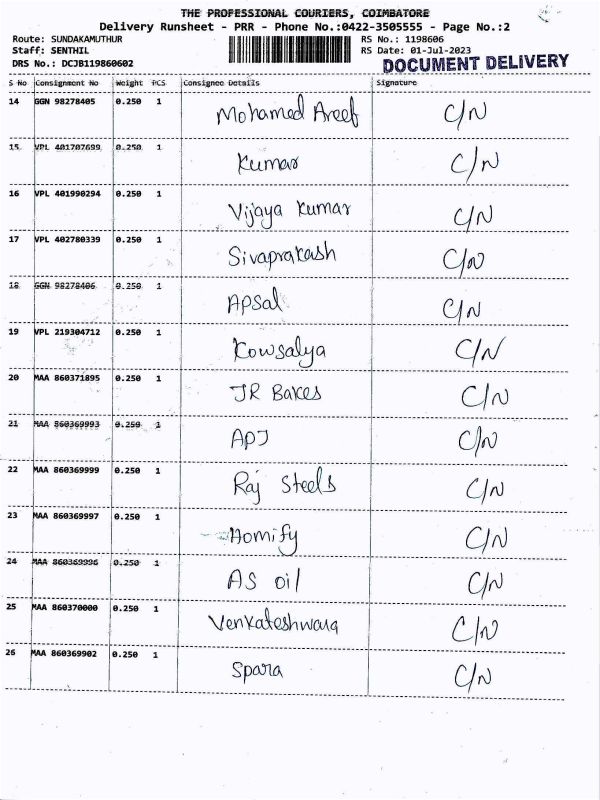 THE PROFESSIONAL COURIERS, COIMBATORE
Delivery Runsheet - PRR - Phone No.:0422-3505555 - Page No.:2
Route: SUNDAKAMUTHUR RS No.: 1198606
Staff: SENTHIL RS Date: 01-Jul-2023
DRS No.: DCJB119860602 DOCUMENT DELIVERY
S No Consignment No Weight PCS Consignee Details Signature
14 GGN 98278405 0.250 1 Mohamed Areef C/N
15 VPL 401707699 0.250 1 Kumar C/N
16 VPL 401990294 0.250 1 Vijaya Kumar C/N
17 VPL 402780339 0.250 1 Sivaprakash C/N
18 GGN 98278406 0.250 1 Apsal C/N
19 VPL 219304712 0.250 1 Kowsalya C/N
20 MAA 860371895 0.250 1 JR Bakes C/N
21 MAA 860369993 0.250 1 APJ C/N
22 MAA 860369999 0.250 1 Raj Steels C/N
23 MAA 860369997 0.250 1 Homify C/N
24 MAA 860369996 0.250 1 AS oil C/N
25 MAA 860370000 0.250 1 Venkateshwara C/N
26 MAA 860369902 0.250 1 Spara C/N